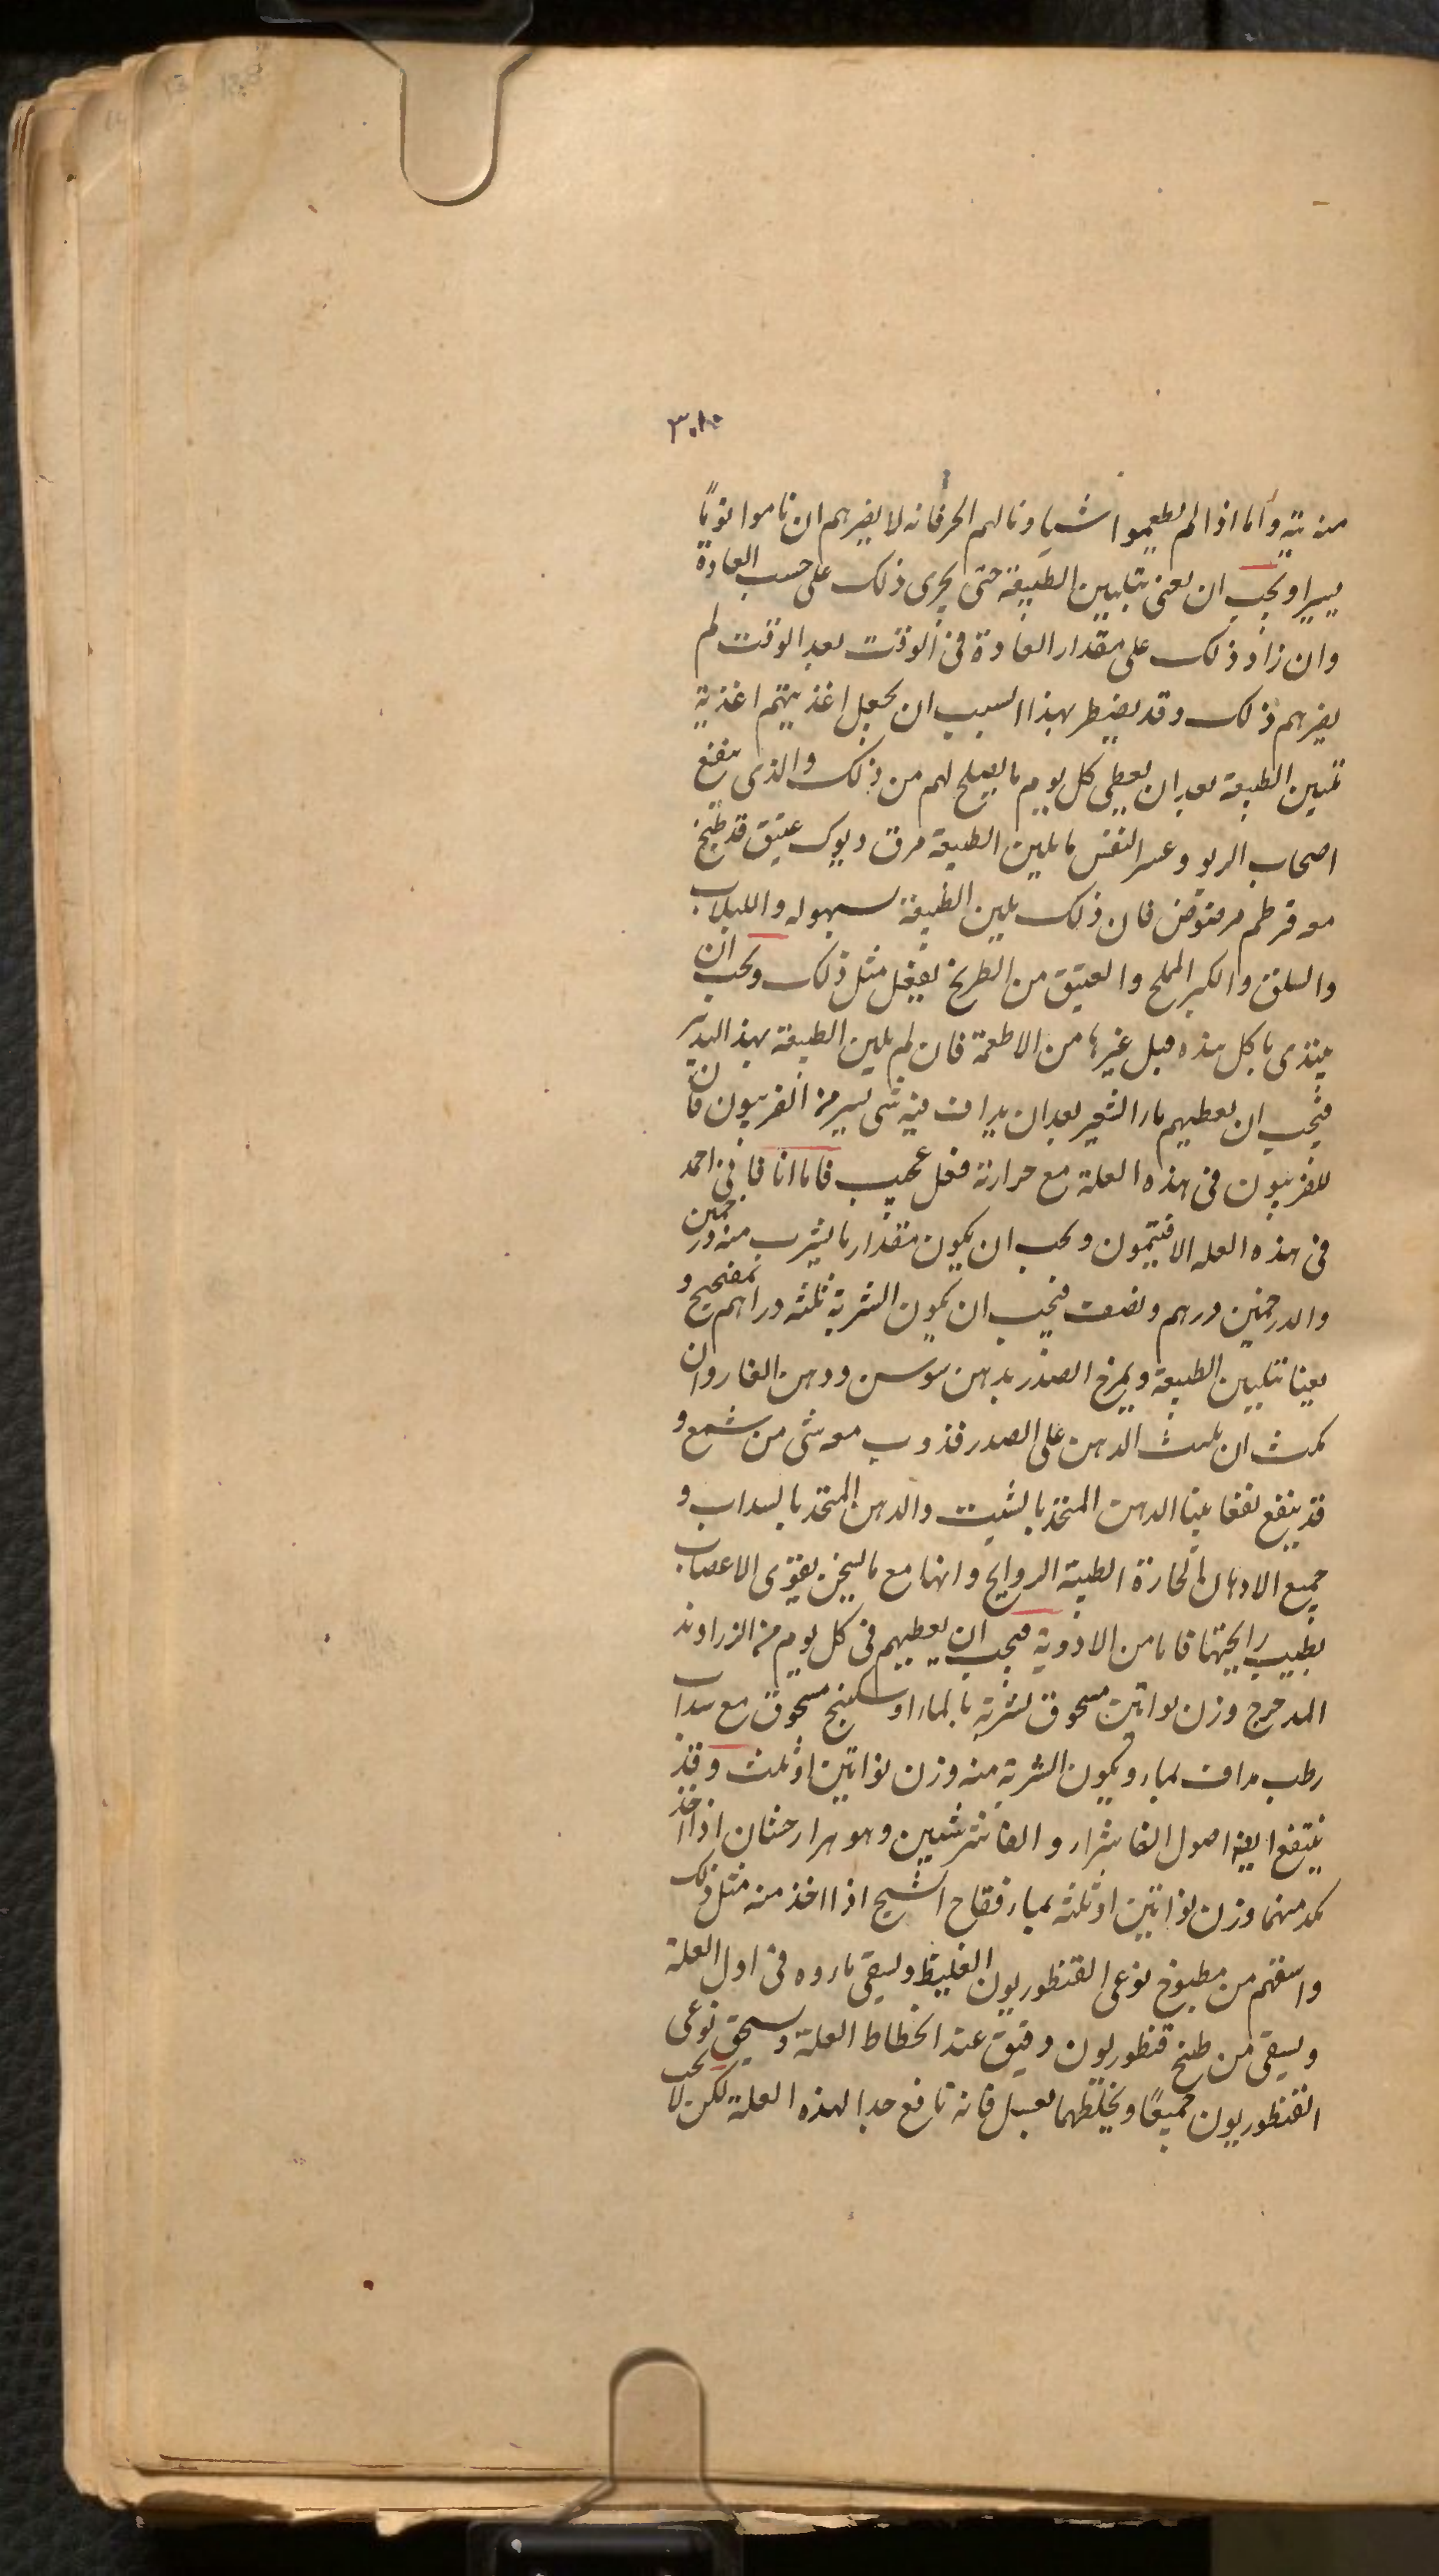 ٣٠٨
منه تة واما اذا لم يطعموا شيا ونالهم الحر فانه لا يضرهم ان ناموا نوماً
يسيرا ويجب ان يعنى بتليين الطبيعة حتى يجرى ذلك على حسب العادة
وان زاد ذلك على مقدار العادة فى الوقت بعد الوقت لم
يضرهم ذلك وقد يضطر بهذا السبب ان يجعل اغذيتهم اغذية
تليين الطبيعة بعد ان يعطى كل يوم ما يصلح لهم من ذلك والذى ينفع
اصحاب الربو وعسر النفس ما يلين الطبيعة مرق ديوك عتيق قد طبخ
معه قرطم مرضوض فان ذلك يلين الطبيعة بسهوله واللبلاب
والسلق والكبر المملح والعتيق من الطريخ يفعل مثل ذلك ويجب ان
يبتدى باكل هذه قبل غيرها من الاطعمة فان لم يلين الطبيعة بهذا التدبير
فيجب ان يعطيهم ماء الشعير بعد ان يداف فيه شى يسير من الفربيون فان
للفربيون فى هذه العلة مع حرارته فعل عجيب فاما انا فانى احمد
فى هذه العله الافتيمون ويجب ان يكون مقدار ما يشرب منه درخمين
والدرخمين درهم ونصف فيجب ان يكون الشربة ثلثه دراهم بمفحيح و
يعينا بتليين الطبيعة ويمرخ الصدر بدهن سوسن ودهن الغار وان
كرث ان يلبث الدهن على الصدر فذوب معه شى من شمع و
قد ينفع نفعا بينا الدهن المتخذ بالشبت والدهن المتخذ بالسداب و
جميع الادهان الحارة الطيبة الروايح وانها مع ما يسخن يقوى الاعصاب
بطيب رايحتها فاما من الادوية فيجب ان يعطيهم فى كل يوم من الزراوند
المدحرج وزن نواتين مسحوق بشربة بالماء او سكبنج مسحوق مع سداب
رطب مداف بماء ويكون الشربة منه وزن نواتين او ثلث وقد
ينتفع ايضا اصول الفاشرا والفاشرشين وهو هزارجشان اذا اخذ
كمد منهما وزن نواتين او ثلثه بماء فقاح الشيح اذا اخذ منه مثل ذلك
واسقهم من مطبوخ نوعى القنطوريون الغليظ ويسقى ماروه فى اول العلة
ويسقى من طبخ قنطوريون دقيق عند انحطاط العلة وسحق نوعى
القنطوريون جميعًا ويخلطهما بعسل فانه نافع جدا لهذه العلة لكن لا يجب